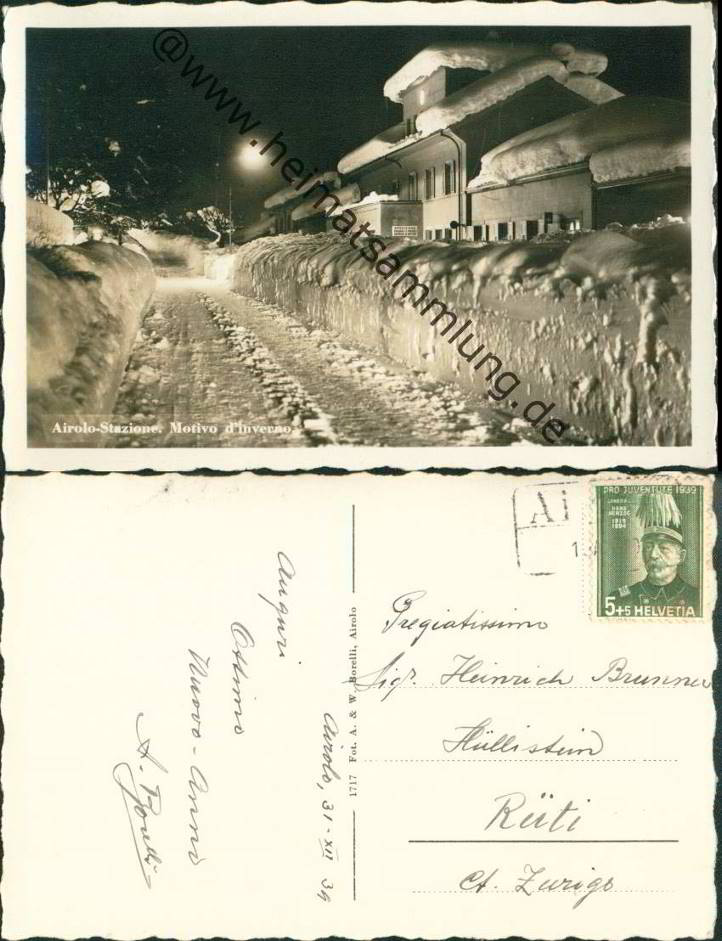 @www.heimatsammlung.de
Airolo-Stazione. Motivo d'inverno.
Auguri
Ottimo
Nuovo-Anno
A. Borelli
Airolo, 31-XII 39
1717 Fot. A. & W. Borelli, Airolo
Ai
PRO JUVENTUTE 1939
GENERAL
HANS
HERZOG
1819
1894
5+5 HELVETIA
Pregiatissimo
Sig. Heinrich Brunner
Hüllistein
Rüti
Ct. Zurigo